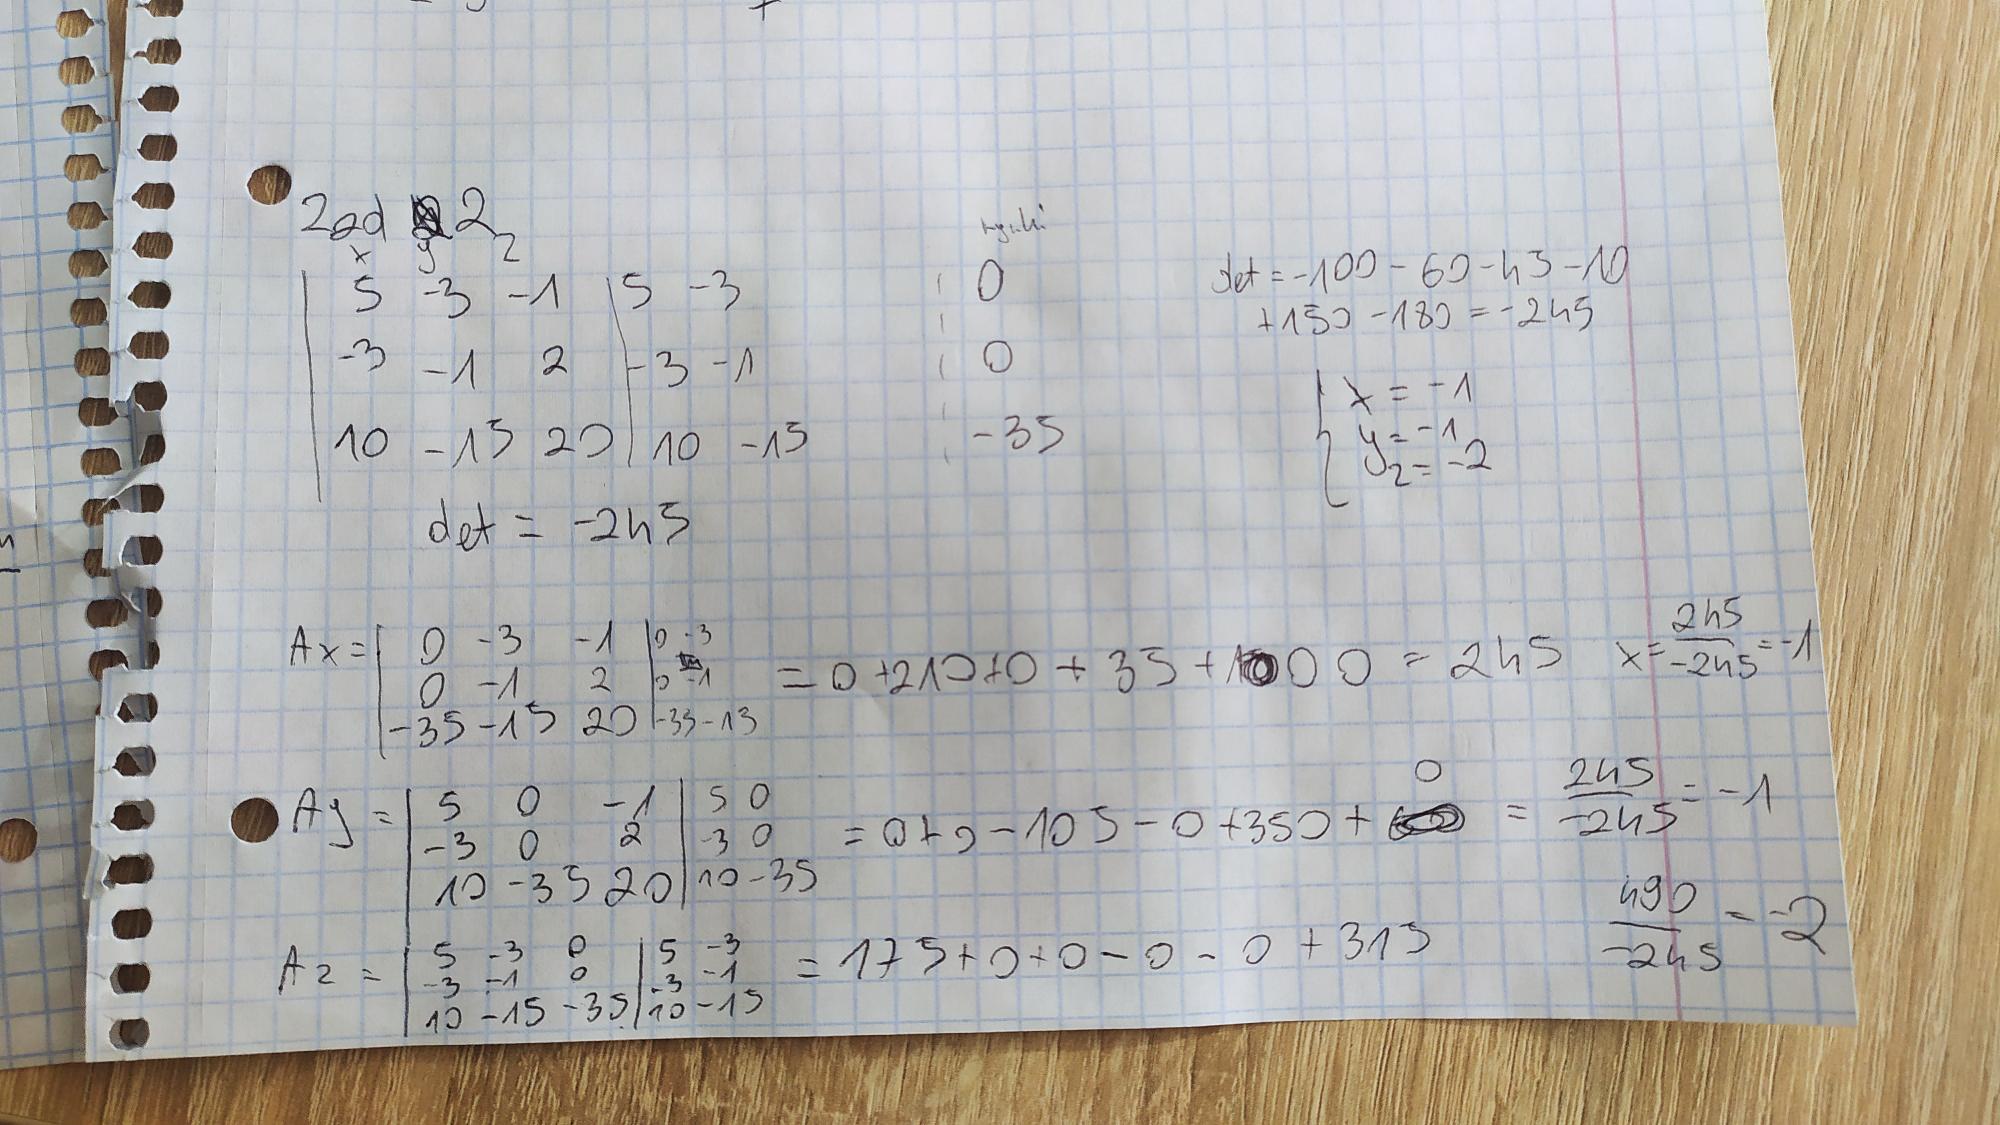 Zad 2
x y z
5 -3 -1 | 5 -3 0
-3 -1 2 | -3 -1 0
10 -15 20 | 10 -15 -35
det = -245
det = -100 - 60 - 45 - 10
+150 - 180 = -245
x = -1
y = -1
z = -2
Ax = | 0 -3 -1 | 0 -3
0 -1 2 | 0 -1
-35 -15 20 | -35 -15
= 0 + 210 + 0 + 35 + 0 0 = 245 x = 245/-245 = -1
Ay = | 5 0 -1 | 5 0
-3 0 2 | -3 0
10 -35 20 | 10 -35
= 0 + 0 - 105 - 0 + 350 + 0 = 245/-245 = -1
Az = | 5 -3 0 | 5 -3
-3 -1 0 | -3 -1
10 -15 -35 | 10 -15
= 175 + 0 + 0 - 0 - 0 + 315 490/-245 = -2